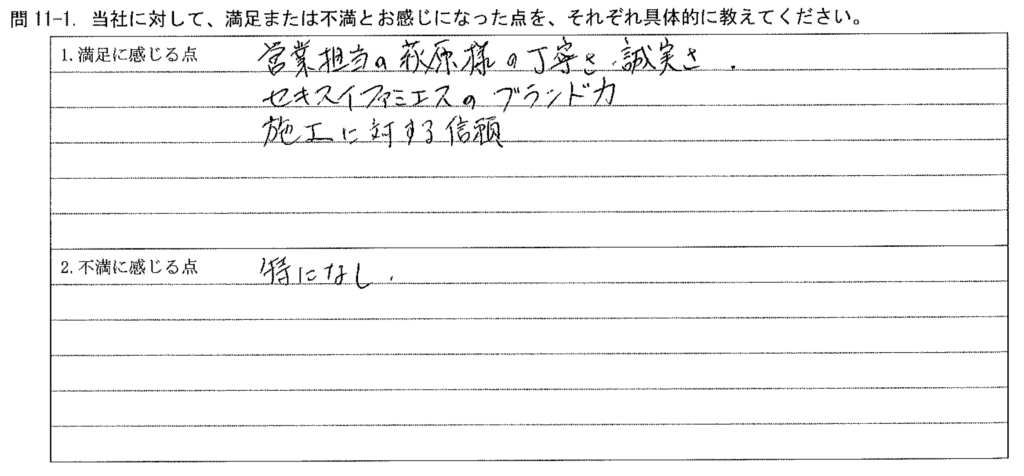 問 11-1. 当社に対して、満足または不満とお感じになった点を、それぞれ具体的に教えてください。
1. 満足に感じる点 営業担当の萩原様の丁寧さ・誠実さ.
セキスイファミエスのブランド力
施工に対する信頼
2. 不満に感じる点 特になし.